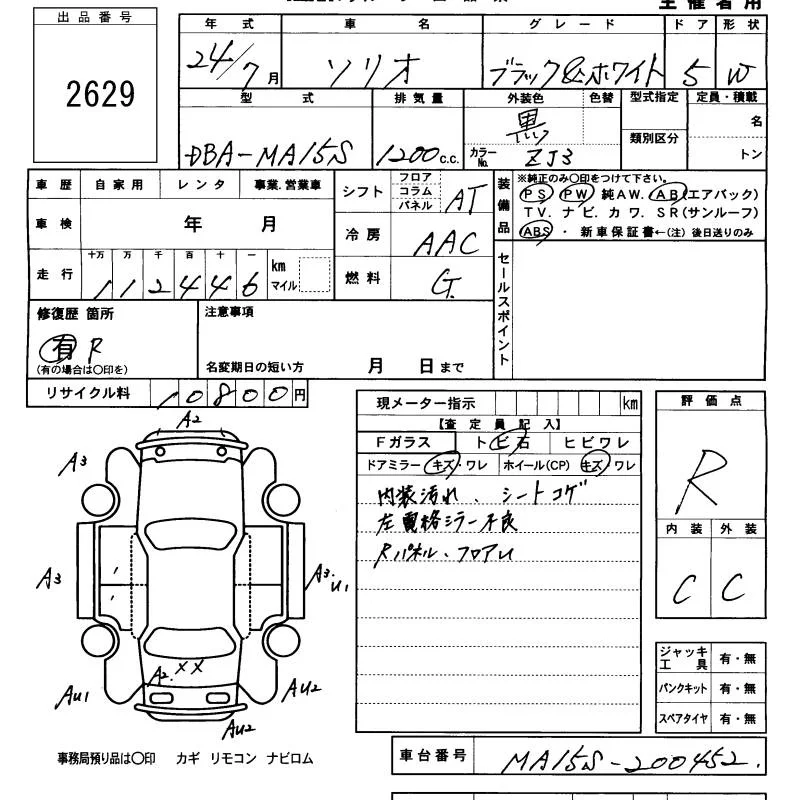 主催者用
出品番号
2629
年式 車名 グレード ドア 形状
24/7月 ソリオ ブラック&ホワイト 5 W
型式 排気量 外装色 色替 型式指定 定員・積載
DBA-MA15S 1200c.c. 黒 名
カラーNo. ZJ3 類別区分 トン
車歴 自家用 レンタ 事業.営業車
車検 年 月
走行 十万 万 千 百 十 一
112446 km マイル
シフト フロア コラム パネル AT
冷房 AAC
燃料 G
装備品
※純正のみ○印をつけて下さい。
PS PW 純AW. AB(エアバック)
TV. ナビ. カワ. SR(サンルーフ)
ABS ・ 新車保証書←(注) 後日送りのみ
セールスポイント
修復歴 箇所
有 R
(有の場合は○印を)
注意事項
名変期日の短い方 月 日まで
リサイクル料 10800円
現メーター指示 km
【査定員記入】
Fガラス トビ石 ヒビワレ
ドアミラー キズ・ワレ ホイール(CP) キズ・ワレ
内装汚れ、シートコゲ
左電格ミラー不良
Rパネル・フロアU
評価点
R
内装 外装
C C
ジャッキ工具 有・無
パンクキット 有・無
スペアタイヤ 有・無
A2
A3
A3
A3.
U1
A2 XX
AU1
AU2
AU2
事務局預り品は○印 カギ リモコン ナビロム
車台番号 MA15S-200452.